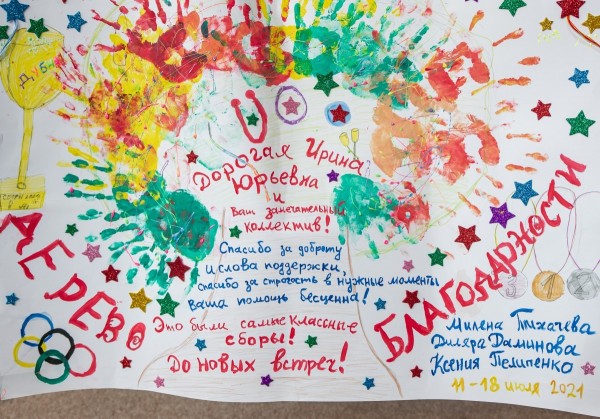 ДЕРЕВО
БЛАГОДАРНОСТИ
Дорогая Ирина
Юрьевна
и
Ваш замечательный
коллектив!
Спасибо за доброту
и слова поддержки,
спасибо за строгость в нужные моменты
Ваша помощь бесценна!
Это были самые классные
сборы!
До новых встреч!
Милена Тыхачева
Диляра Даминова
Ксения Пелипенко
11-18 июля 2021